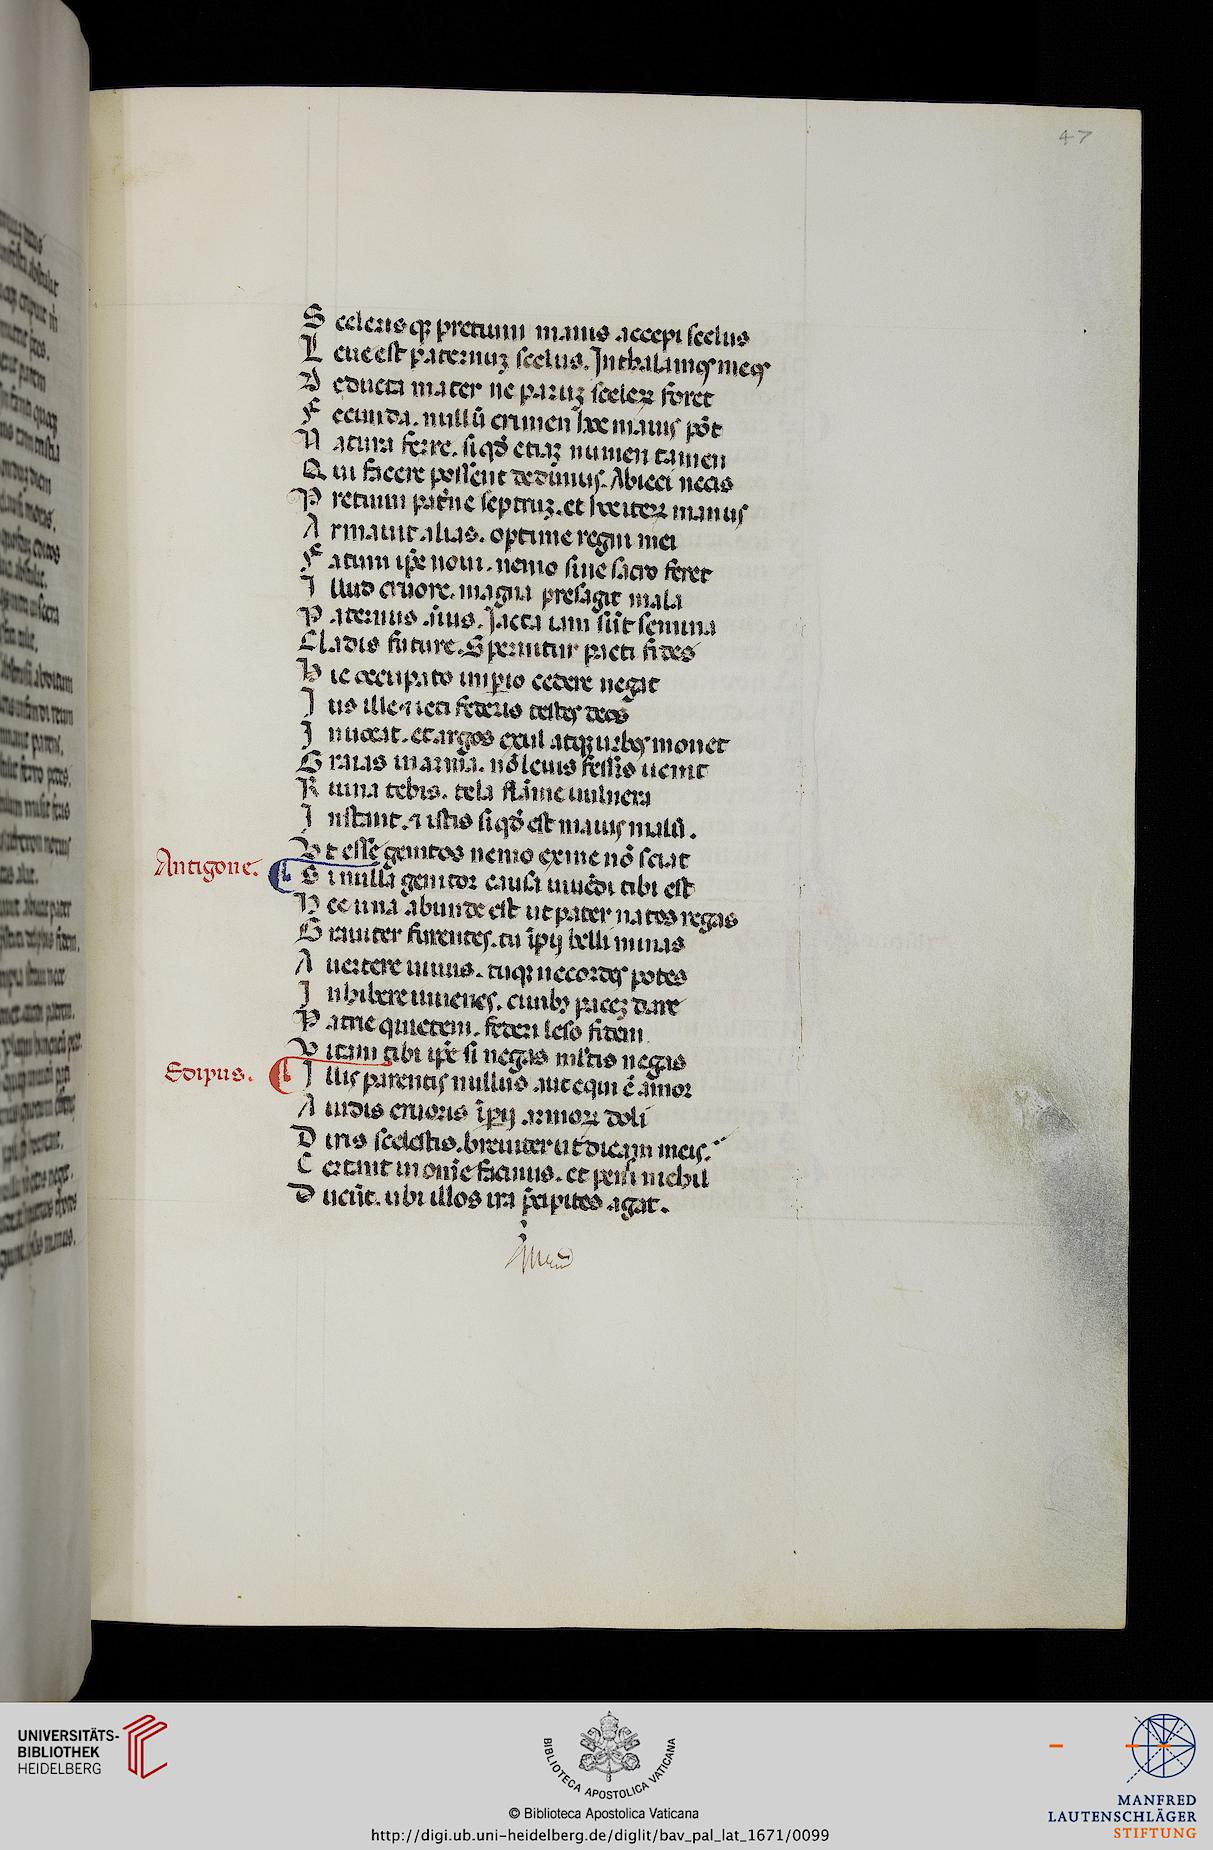 47
S celerisqꝫ pretium maius accepi scelus
L eue est paternuꝫ scelus. Inthalamoꝰ meoꝰ
D educta mater ne paruꝫ sceleꝝ foret
F ecunda. nullũ crimen hoc maius põt
N atura ferre. siqd̃ etiaꝫ numen tamen
Q ui facere possent dedimus. Abieci necis
P retium pat̃ne septruꝫ. et hoc iteꝝ manus
A rmauit alias. optime regni mei
F atum ip̃e noui. nemo sine sacro feret
I llud cruore. magna presagit mala
P aternus aĩus. Jacta iam sũt semina
Cladis future. Spernitur pacti fides
H ic occupato imꝑio cedere negat
I us ille ⁊ icti federis testes deos
I nuocat. et argos exul atqꝫ urbes mouet
G raias in arma. nõ leuis fessis uenit
R uina tebis. tela flãme uulnera
I nstant. ⁊ istis siqd̃ est maius malũ.
V t esse genitos nemo ex me nõ sciat
Antigone.
S i nulla genitor causa uiuẽdi tibi est
H ec una abunde est ut pater natos regas
G rauiter furentes. tu ĩpij belli minas
A uertere unus. tuqꝫ uecordes potes
I nhibere iuuenes. ciuibꝫ paceꝫ dare
P atrie quietem. federi leso fidem
V itam tibi ip̃e si negas ml̃tis negas
Edipus.
I llis parentis nullus aut equi ẽ amor
A uidis cruoris ĩpij armoꝝ doli
D iris scelestis. breuiter ut dicam meis.
C ertant in om̃e facinus. et pensi nichil
D ucũt. ubi illos ira p̃cipites agat.
UNIVERSITÄTS-
BIBLIOTHEK
HEIDELBERG
BIBLIOTECA APOSTOLICA VATICANA
© Biblioteca Apostolica Vaticana
http://digi.ub.uni-heidelberg.de/diglit/bav_pal_lat_1671/0099
MANFRED
LAUTENSCHLÄGER
STIFTUNG